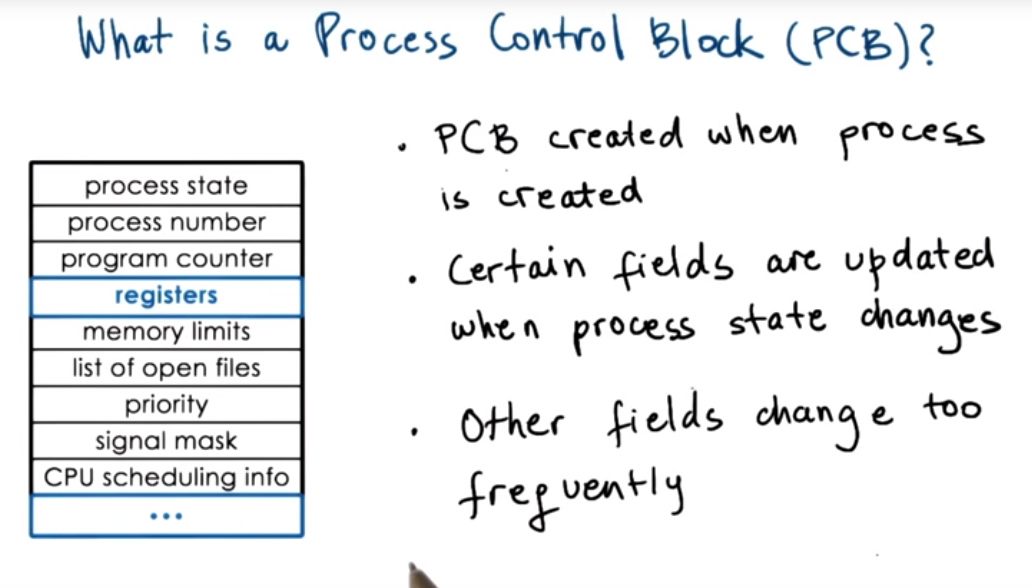 What is a Process Control Block (PCB)?
process state
process number
program counter
registers
memory limits
list of open files
priority
signal mask
CPU scheduling info
...
• PCB created when process
is created
• Certain fields are updated
when process state changes
• Other fields change too
frequently